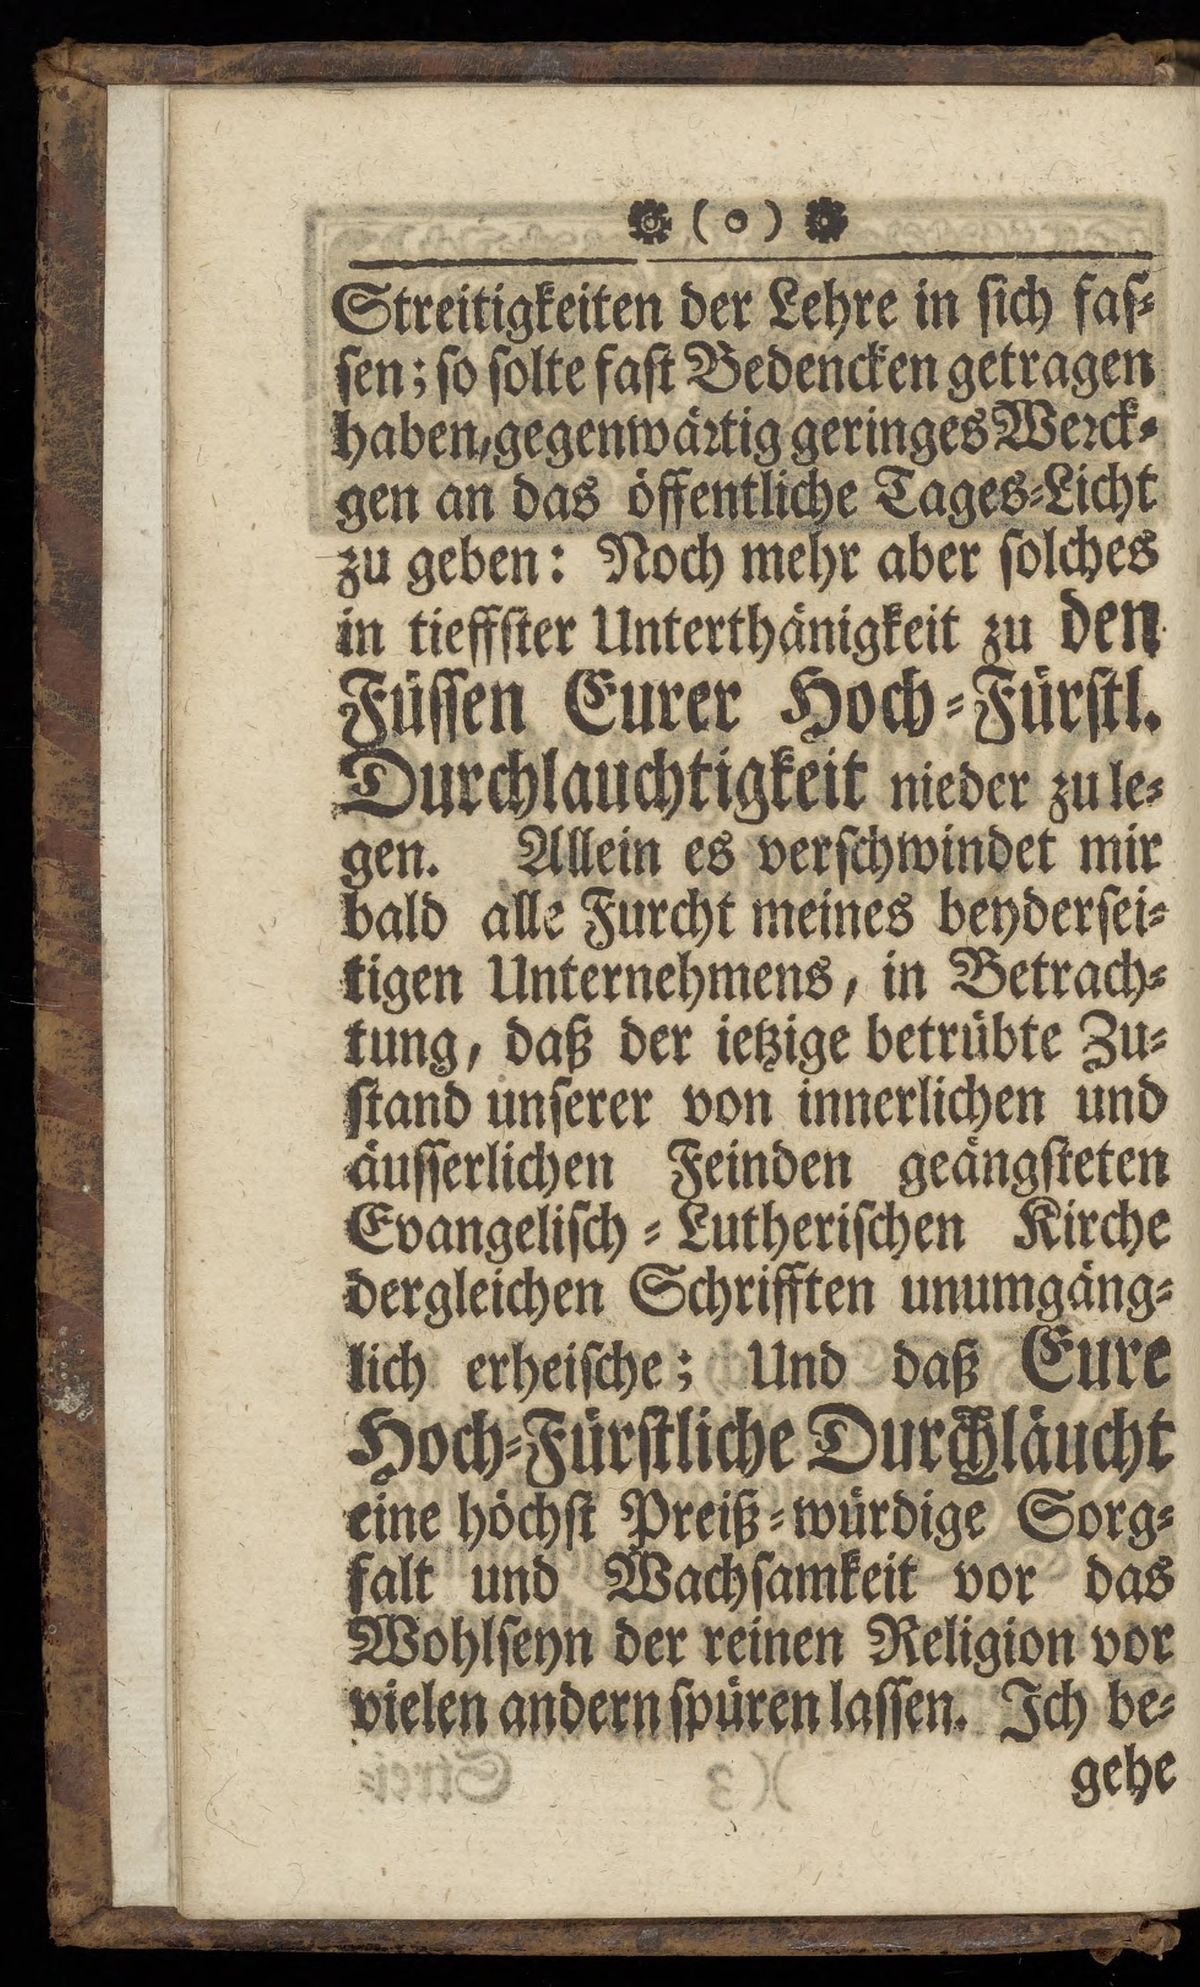 ❁ ( o ) ❁
Streitigkeiten der Lehre in ſich faſ-
ſen; ſo ſolte faſt Bedencken getragen
haben, gegenwärtig geringes Werck-
gen an das öffentliche Tages-Licht
zu geben: Noch mehr aber ſolches
in tieffſter Unterthänigkeit zu den
Füſſen Eurer Hoch-Fürſtl.
Durchlauchtigkeit nieder zu le-
gen. Allein es verſchwindet mir
bald alle Furcht meines beyderſei-
tigen Unternehmens, in Betrach-
tung, daß der ietzige betrübte Zu-
ſtand unſerer von innerlichen und
äuſſerlichen Feinden geängſteten
Evangeliſch-Lutheriſchen Kirche
dergleichen Schrifften unumgäng-
lich erheiſche; Und daß Eure
Hoch-Fürſtliche Durchläucht
eine höchſt Preiß-würdige Sorg-
falt und Wachſamkeit vor das
Wohlſeyn der reinen Religion vor
vielen andern ſpüren laſſen. Ich be-
gehe